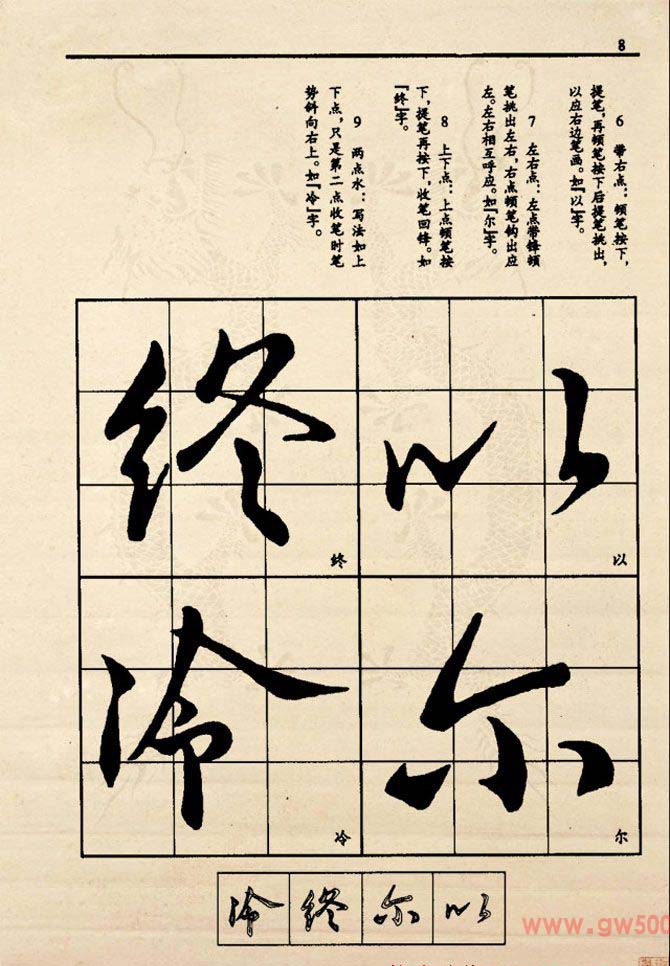 8
6 带右点：顿笔按下，
提笔，再顿笔按下后提笔挑出，
以应右边笔画。如『以』字。
7 左右点：左点带锋顿
笔挑出左右，右点顿笔钩出应
左。左右相互呼应。如『尔』字。
8 上下点：上点顿笔按
下，提笔再按下，收笔回锋。如
『终』字。
9 两点水：写法如上
下点，只是第二点收笔时笔
势斜向右上。如『冷』字。
以
以
尔
尔
终
终
冷
冷
以
尔
终
冷
www.gw500